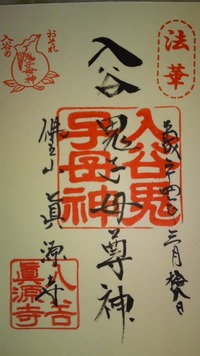 法華
平成二十四年三月拾八日
入谷
鬼子母尊神
佛立山 眞源寺
おそれ
入谷の
鬼子母神
入谷鬼
子母神
入谷
眞源寺